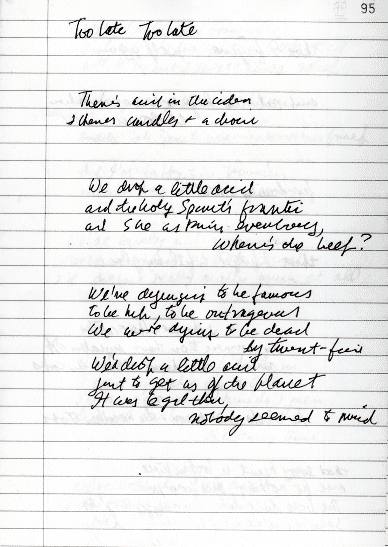 95
Too late Too late
There's acid in the cider
& there's candles & a
We drop a little acid
and the Holy Spirit's frantic
and she asking everybody,
Where's the beef?
We're dying to be famous
to be rich, to be outrageous
We were dying to be dead
by twenty-five
We'd drop a little acid
just to get us of the planet
It was legal then,
nobody seemed to mind